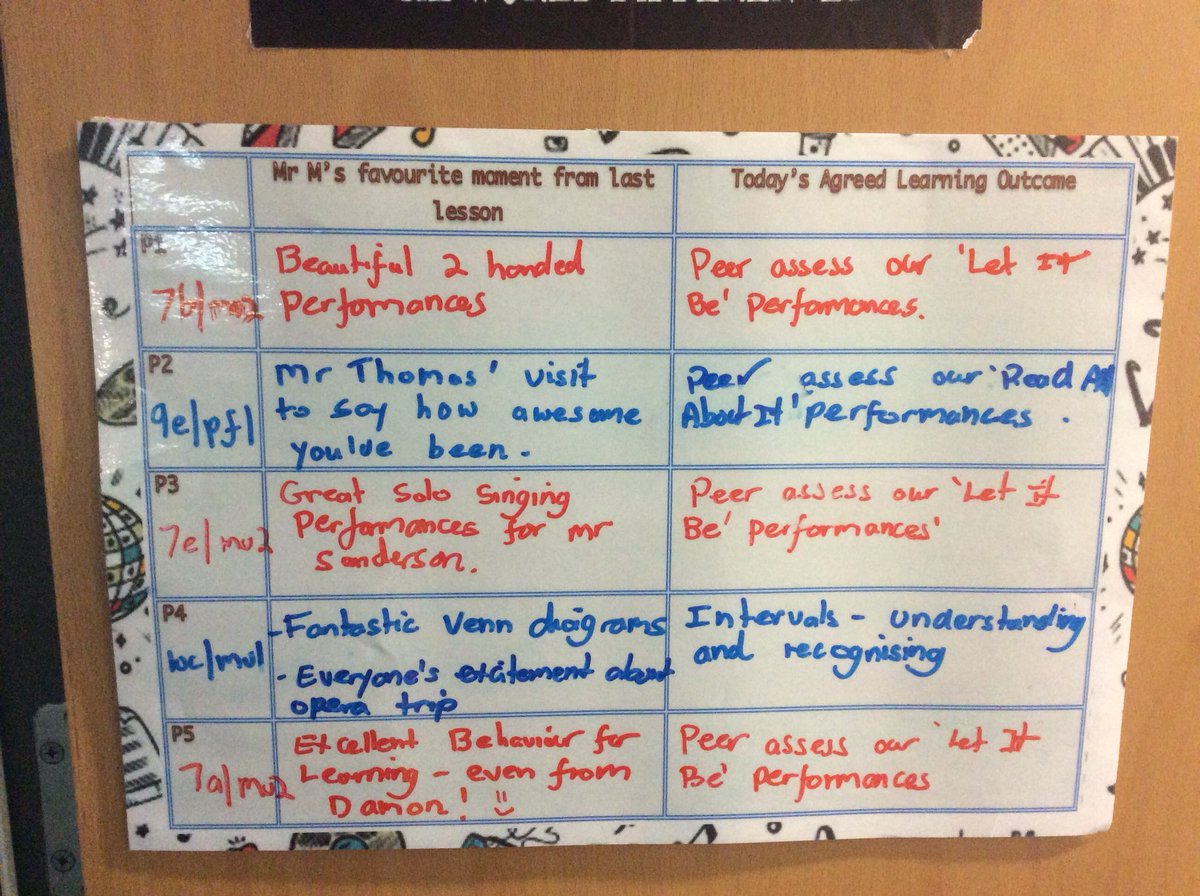 Mr M's favourite moment from last
lesson
Today's Agreed Learning Outcome
P1
7b/mu2
Beautiful 2 handed
performances
Peer assess our 'Let It
Be' performances.
P2
9e/pf1
Mr Thomas' visit
to say how awesome
you've been.
Peer assess our 'Read All
About It' performances.
P3
7e/mu2
Great solo singing
performances for mr
Sanderson.
Peer assess our 'Let It
Be' performances'
P4
10c/mu1
- Fantastic Venn diagrams
- Everyone's excitement about
opera trip
Intervals - understanding
and recognising
P5
7a/mu2
Excellent Behaviour for
Learning - even from
Damon!
Peer assess our 'Let It
Be' performances